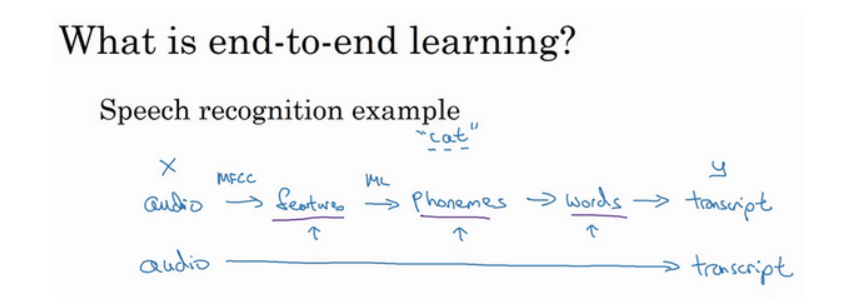 What is end-to-end learning?
Speech recognition example
"cat"
X y
MFCC ML
audio → features → Phonemes → words → transcript
↑ ↑ ↑
audio → transcript